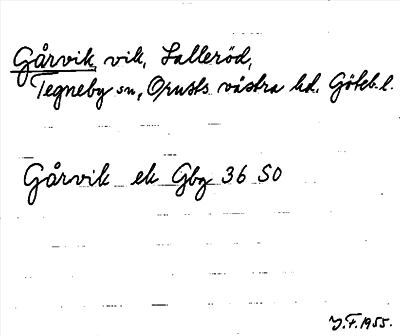 Gårvik vik, Salleröd,
Tegneby sn, Orusts västra hd. Göteb. l.
Gårvik ek Gbg 36 SO
J.F. 1955.